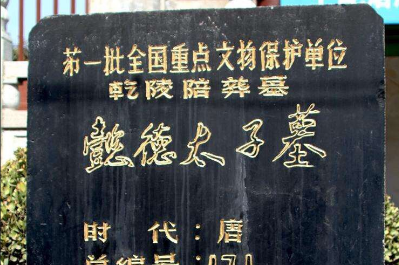 第一批全国重点文物保护单位
乾陵陪葬墓
懿德太子墓
时代:唐
总编号:171